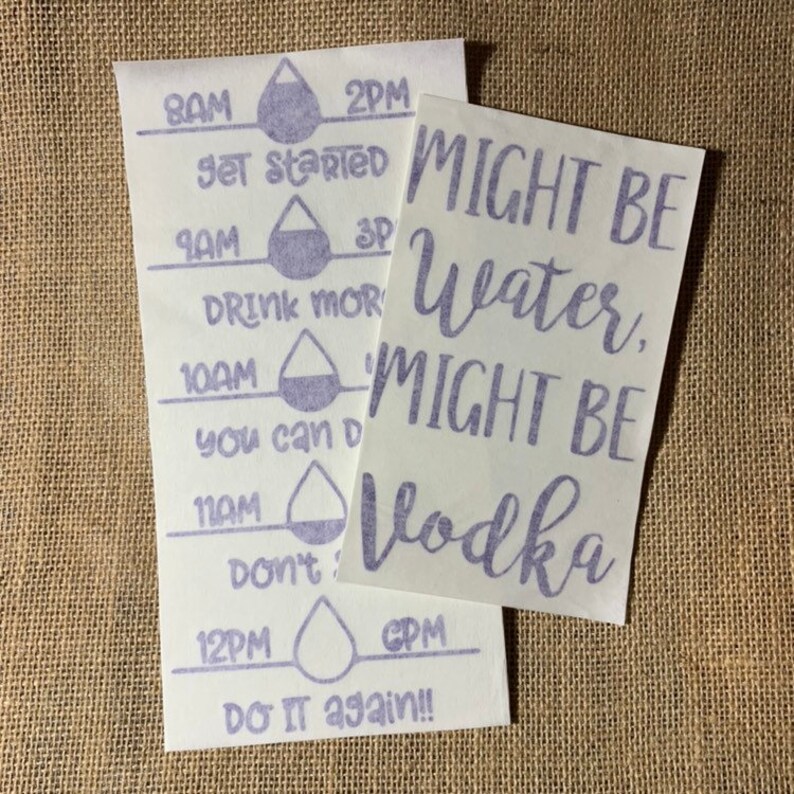 8AM 2PM
get started
9AM
DRINK
10AM
you can
11AM
DON't
12PM 6PM
DO IT again!!
MIGHT BE
Water,
MIGHT BE
Vodka